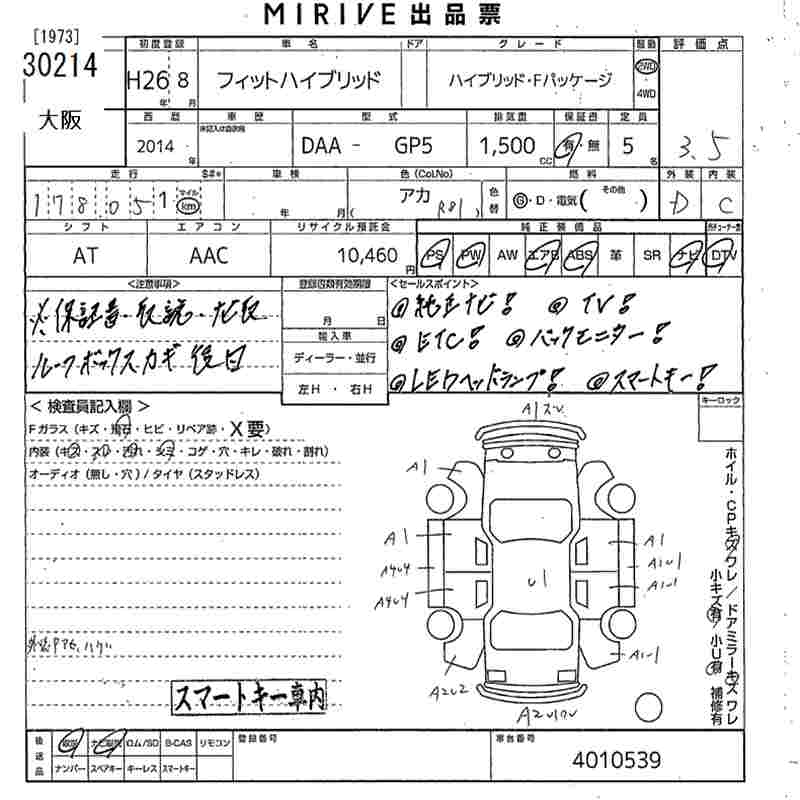 MIRIVE出品票
[1973]
30214
大阪
初度登録 車名 ドア グレード 駆動 評価点
H26 8 フィットハイブリッド ハイブリッド・Fパッケージ 2WD
年 月 4WD
西暦 車歴 型式 排気量 保証書 定員
2014 年 記入は自家用 DAA - GP5 1,500 CC 有・無 5 名 3.5
走行 S#* 車検 色(Col.No) 燃料 外装 内装
178,051 マイル km 年 月( アカ R81) 色替 G・D・電気( その他 ) D C
シフト エアコン リサイクル預託金 純正装備品
AT AAC 10,460 円 PS PW AW エアB ABS 革 SR ナビ DTV
<注意事項> 登録書類有効期限 <セールスポイント>
※保証書・取説・ナビ取 月 日 @純正ナビ! @TV!
輸入車 @ETC! @バックモニター!
ルーフボックスカギ後日 ディーラー・並行
左H・右H @LEDヘッドランプ! @スマートキー!
<検査員記入欄> キーロック
Fガラス(キズ・飛石・ヒビ・リペア跡・X要)
内装(キズ・スレ・汚れ・シミ・コゲ・穴・キレ・破れ・割れ)
オーディオ(無し・穴)/タイヤ(スタッドレス)
A1
A1 A1
A4U4 A1U1
U1
A4U4
A2U2
スマートキー車内
ホイル・CPキズワレ/ドアミラーキズワレ
小キズ有/小U有 補修有
後送品 取説 ナビ取説 ROM/SD B-CAS リモコン 登録番号 車台番号
ナンバー スペアキー キーレス スマートキー 4010539